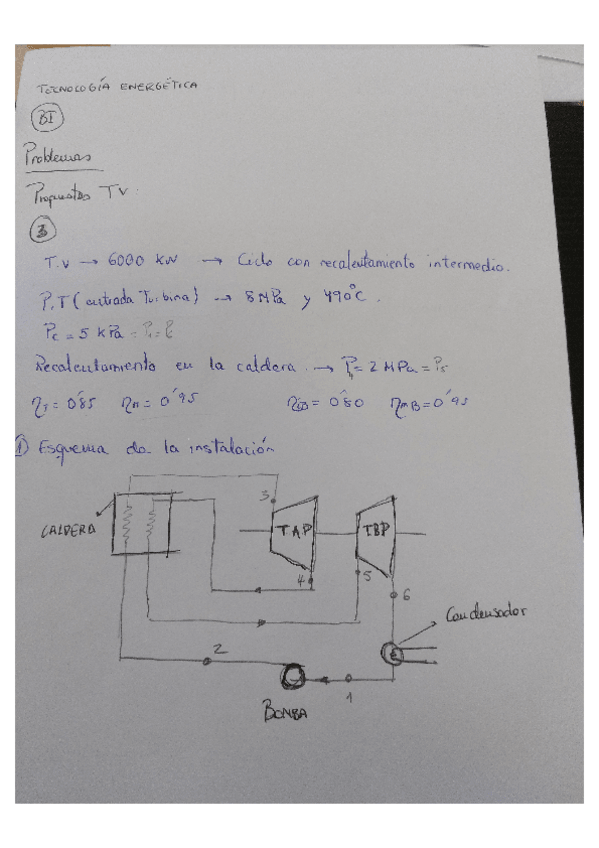 TECNOLOGÍA ENERGÉTICA
BI
Problemas
Propuestos TV:
3
T.V → 6000 kW → Ciclo con recalentamiento intermedio.
P,T (entrada Turbina) → 8 MPa y 490°C.
Pc = 5 kPa = P1 = P6
Recalentamiento en la caldera → P4 = 2 MPa = P5
ηT = 0'85 ηm = 0'95 ηB = 0'80 ηmB = 0'95
1) Esquema de la instalación
3
CALDERA
TAP
TBP
4
5
6
Condensador
2
1
BOMBA